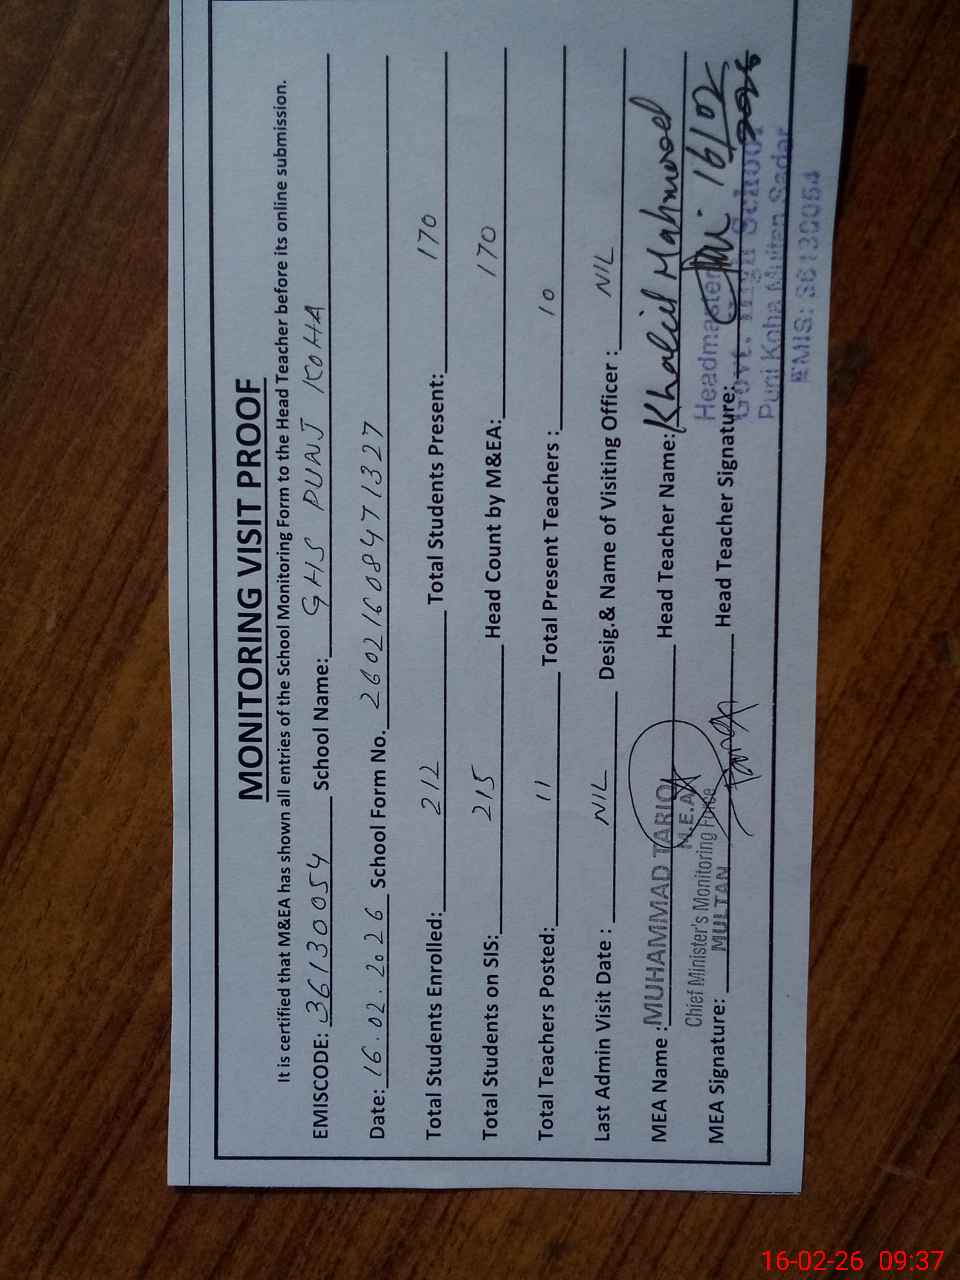 MONITORING VISIT PROOF
It is certified that M&EA has shown all entries of the School Monitoring Form to the Head Teacher before its online submission.
EMISCODE: 36130054 School Name: GHS PUNJ KOHA
Date: 16.02.2026 School Form No. 26021608471327
Total Students Enrolled: 212 Total Students Present: 170
Total Students on SIS: 215 Head Count by M&EA: 170
Total Teachers Posted: 11 Total Present Teachers : 10
Last Admin Visit Date : NIL Desig.& Name of Visiting Officer : NIL
MEA Name : MUHAMMAD TARIQ Head Teacher Name: Khalid Mahmood
M.E.A
Chief Minister's Monitoring Force
MULTAN
MEA Signature: Head Teacher Signature: 16/02
2026
Headmaster
Govt. High School
Punj Koha Multan Sadar
EMIS: 36130054
16-02-26 09:37